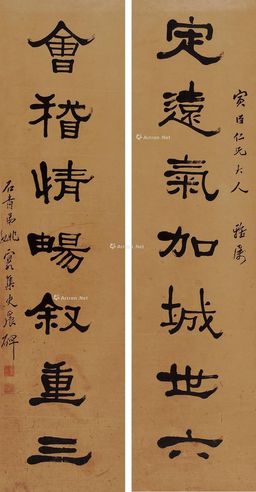 寅臣仁兄大人 雅屬
定遠氣加城世六
會稽情暢叙重三
集史晨碑
Artron.Net